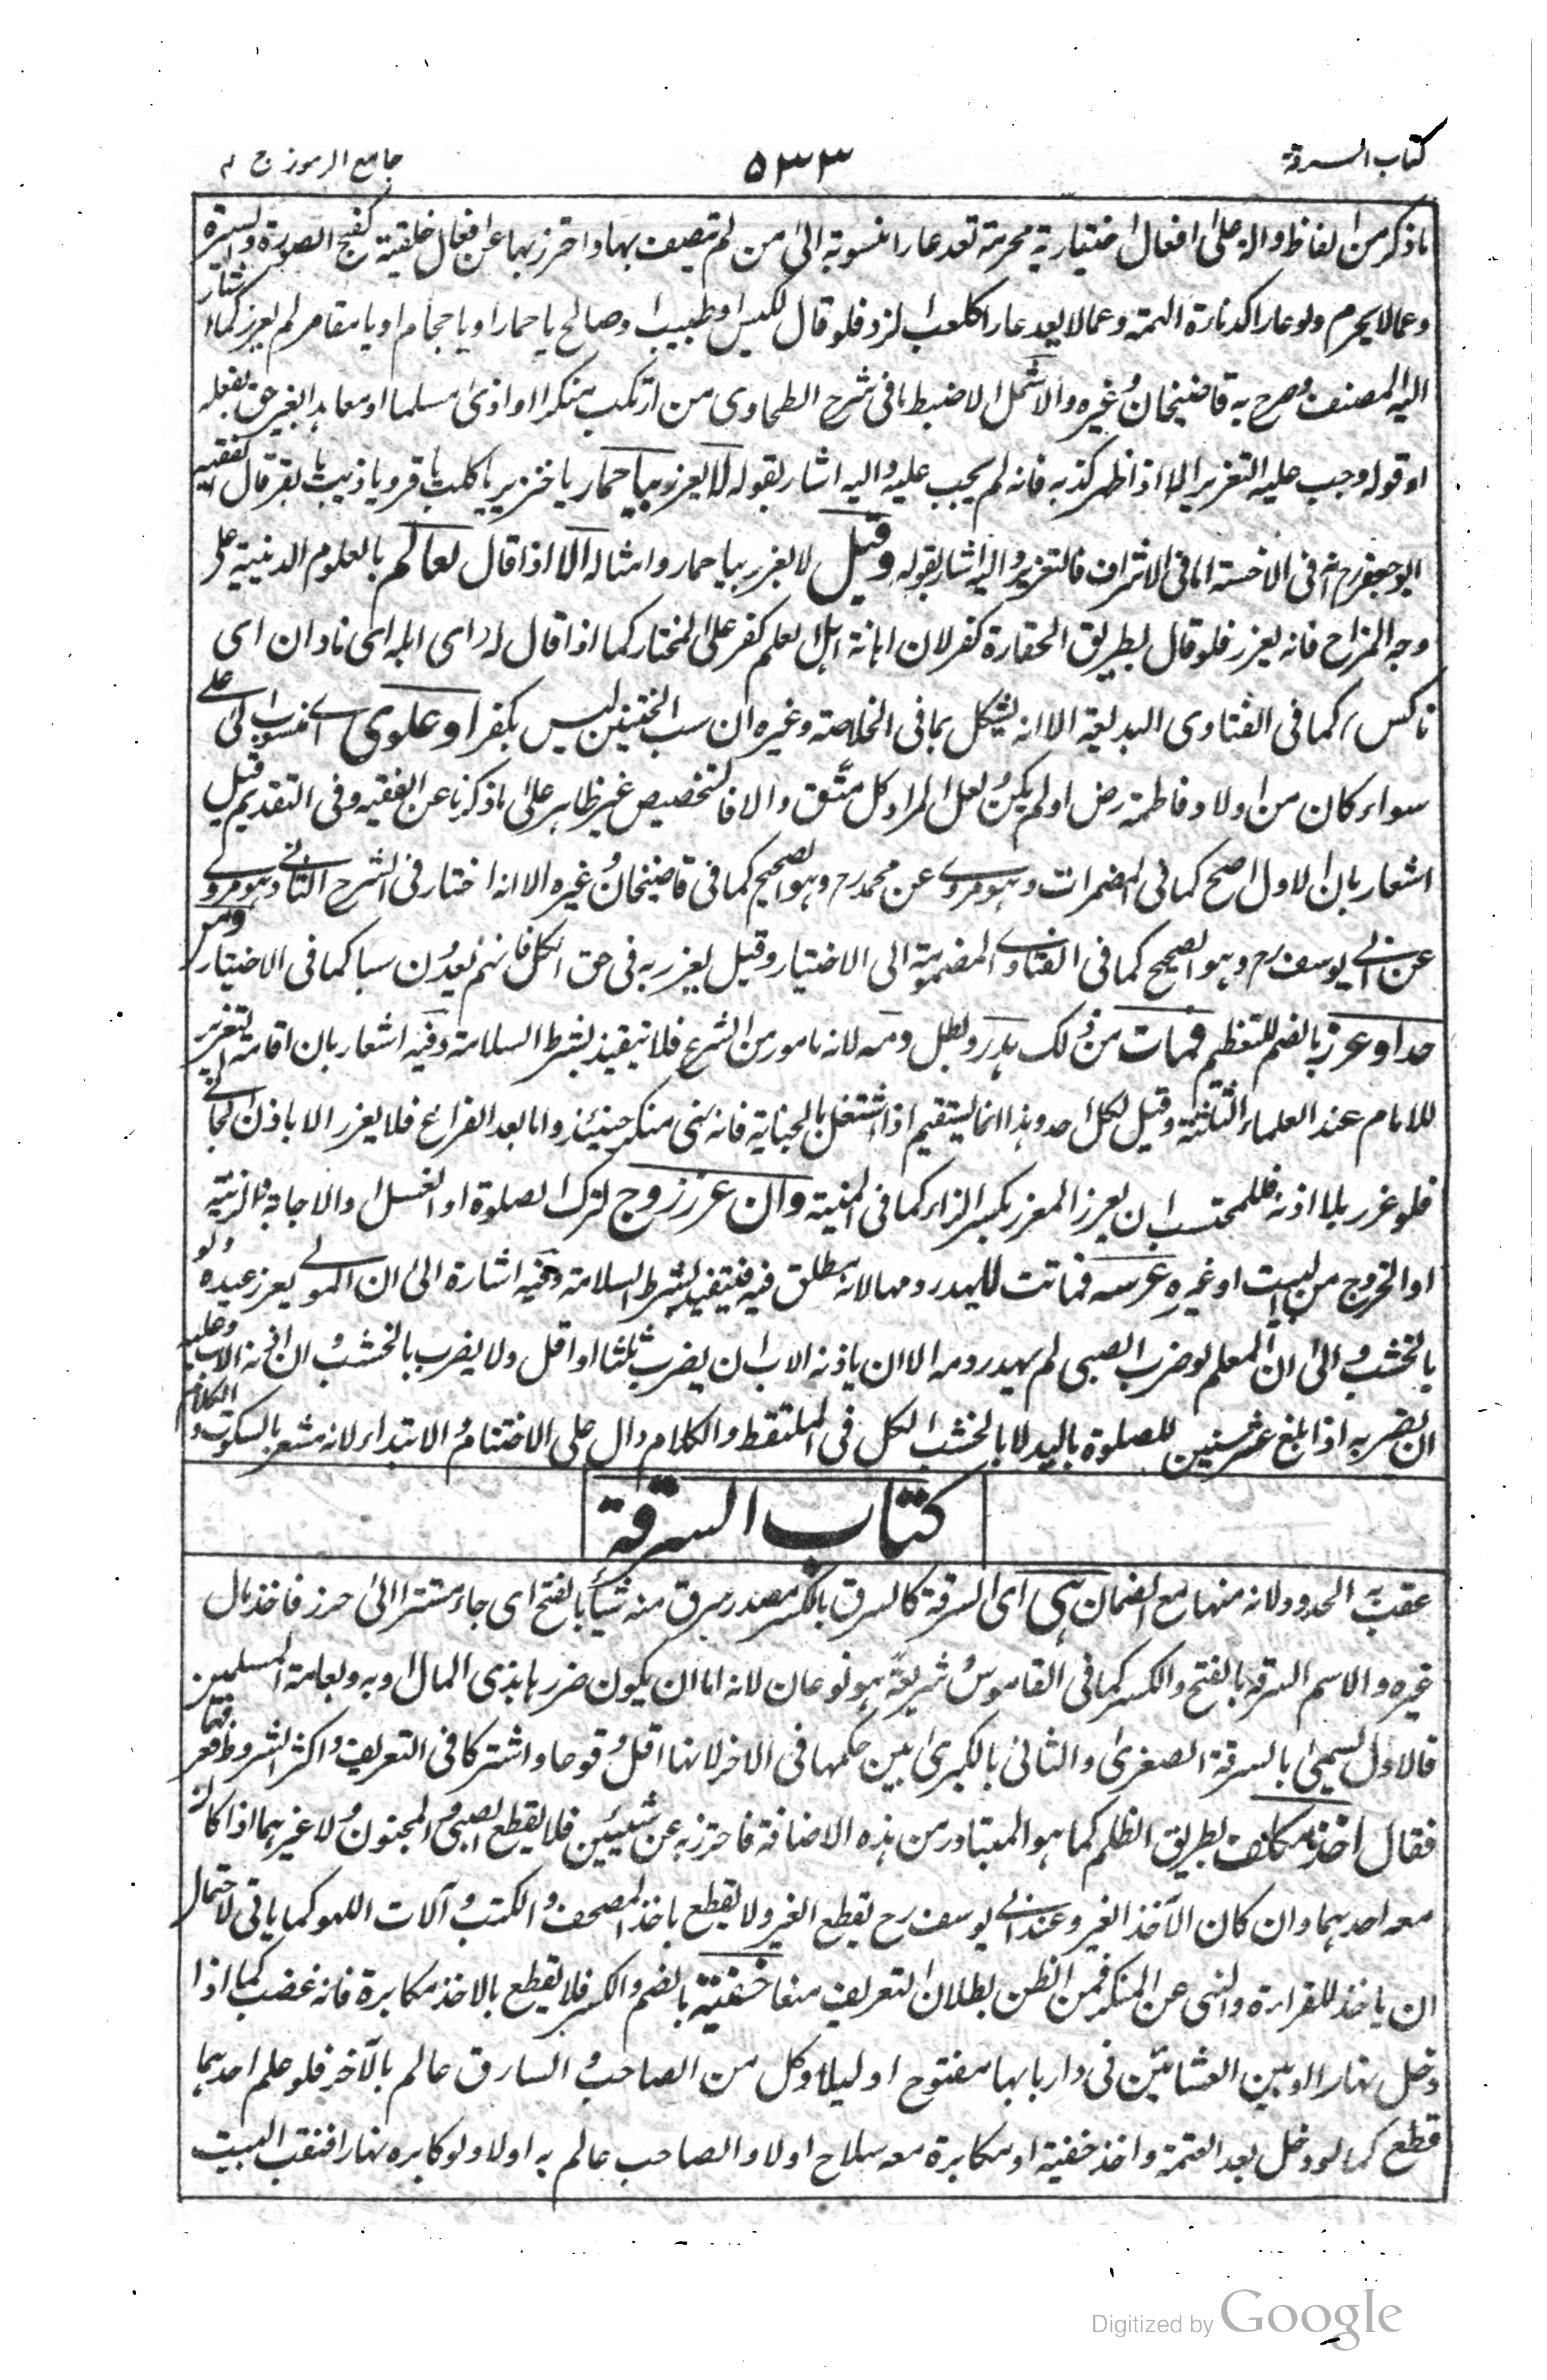 كتاب السرقة
٥٣٣
جامع الرموز ج ٢
ما ذكر من الفاظ دالة على افعال اختيارية محرمة تعد عارا منسوبة الى من لم يتصف بها واحترز بها عن افعال خلقية كقبح الصورة والسيرة
وعما لا يحرم ولو عارا كدناءة الهمة وعما لا يعد عارا كلعب النرد فلو قال لكيس او طبيب او صالح يا حمار او يا حجام او يا مقامر لم يعزر كما اشار
اليه المصنف وصرح به قاضيخان وغيره والاشمل الاضبط ما فى شرح الطحاوى من ارتكب منكرا او اذى مسلما او معاهدا بغير حق بفعله
او قوله وجب عليه التعزير الا اذا ظهر كذبه فانه لم يجب عليه واليه اشار بقوله لا يعزر بيا حمار يا خنزير يا كلب يا قرد يا ذيب يا بقر قال الفقيه
ابو جعفر رح انه فى الاخسة اما فى الاشراف فالتعزير واليه اشار بقوله وقيل لا يعزر بيا حمار وامثاله الا اذا قال لعالم بالعلوم الدينية على
وجه المزاح فانه يعزر فلو قال بطريق الحقارة كفر لان اهانة اهل العلم كفر على المختار كما اذا قال له اى ابله اى نادان اى
ناكس كما فى الفتاوى البديعة الا انه يشكل بما فى الخلاصة وغيره ان سب الختنين ليس بكفر او علوى اى منسوب الى على
سواء كان من اولاد فاطمة رض او لم يكن ولعل المراد كل متق والا فالتخصيص غير ظاهر على ما ذكرنا عن الفقيه وفى التقديم قيل
اشعار بان الاول اصح كما فى المضمرات وهو مروى عن محمد رح وهو الصحيح كما فى قاضيخان وغيره الا انه اختار فى الشرح الثانى وهو مروى
عن ابى يوسف رح وهو الصحيح كما فى الفتاوى المضمومة الى الاختيار وقيل يعزر به فى حق الكل فانهم يعدون سبا كما فى الاختيار ومن
حد او عزر بالضم للتعظيم فمات من ذلك هدر وبطل دمه لانه مامور من الشرع فلا يتقيد بشرط السلامة وفيه اشعار بان اقامة التعزير
للامام عند العلماء الثلثة وقيل لكل احد وهذا انما يستقيم اذا اشتغل بالجناية فانه نهى منكر حينئذ واما بعد الفراغ فلا يعزر الا باذن الحاكم
فلو عزر بلا اذنه فللمحتسب ان يعزر المعزر بكسر الزاء كما فى المنية وان عزر زوج لترك الصلوة او الغسل او الاجابة او الزينة
او الخروج من البيت او غيره عرسه فماتت لا يهدر دمها لانه مطلق فيه فيتقيد بشرط السلامة وفيه اشارة الى ان المولى يعزر عبده ولو
بالخشب والى ان المعلم لو ضرب الصبى لم يهدر دمه الا ان ياذنه الاب ان يضرب ثلثا او اقل ولا يضرب بالخشب وان اذنه الاب وعليه
ان يضربه اذا بلغ عشر سنين للصلوة باليد لا بالخشب الكل فى الملتقط والكلام دال على الاختتام والابتداء لانه مشعر بالسكوت والكلام
كتاب السرقة
عقب به الحدود لانه منها مع الضمان هى اى السرقة كالسرق بالكسر مصدر سرق منه شيئا بالفتح اى جاء مستترا الى حرز فاخذ مال
غيره والاسم السرقة بالفتح والكسر كما فى القاموس وشريعة هو نوعان لانه اما ان يكون ضررها بذى المال او به وبعامة المسلمين
فالاول يسمى بالسرقة الصغرى والثانى بالكبرى بين حكمها فى الاخر لانها اقل وقوعا واشتركا فى التعريف واكثر الشروط فعرفها
فقال اخذ مكلف بطريق الظلم كما هو المتبادر من هذه الاضافة فاحترز به عن شيئين فلا يقطع الصبى والمجنون ولا غيرهما اذا كان
معه احدهما وان كان الآخذ الغير وعند ابى يوسف رح يقطع الغير ولا يقطع باخذ المصحف والكتب وآلات اللهو كما ياتى لاحتمال
ان ياخذ للقراءة والنهى عن المنكر فمن الظن بطلان التعريف منعا خفية بالضم والكسر فلا يقطع بالاخذ مكابرة فانه غصب كما اذا
دخل نهارا او بين العشائين فى دار بابها مفتوح او ليلا وكل من الصاحب والسارق عالم بالآخر فلو علم احدهما
قطع كما لو دخل بعد العتمة واخذ خفية او مكابرة معه سلاح اولا والصاحب عالم به اولا ولو كابره نهارا فنقب البيت
Digitized by Google